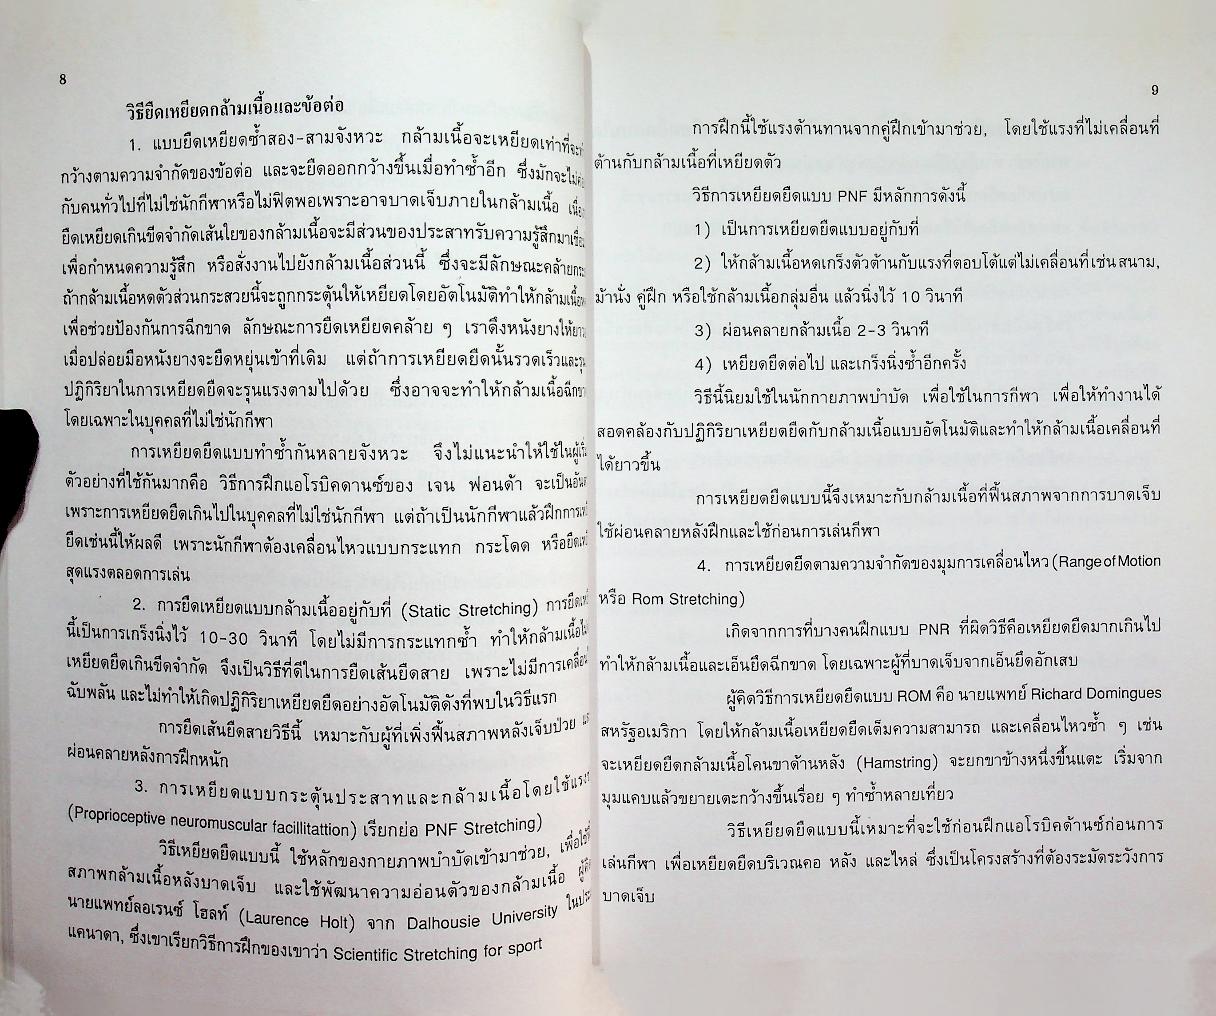 8
วิธียืดเหยียดกล้ามเนื้อและข้อต่อ
1. แบบยืดเหยียดซ้ำสอง-สามจังหวะ กล้ามเนื้อจะเหยียดเท่าที่จะ
กว้างตามความจำกัดของข้อต่อ และจะยืดออกกว้างขึ้นเมื่อทำซ้ำอีก ซึ่งมักจะไม่
กับคนทั่วไปที่ไม่ใช่นักกีฬาหรือไม่ฟิตพอเพราะอาจบาดเจ็บภายในกล้ามเนื้อ
ยืดเหยียดเกินขีดจำกัดเส้นใยของกล้ามเนื้อจะมีส่วนของประสาทรับความรู้สึกมา
เพื่อกำหนดความรู้สึก หรือสั่งงานไปยังกล้ามเนื้อส่วนนี้ ซึ่งจะมีลักษณะคล้าย
ถ้ากล้ามเนื้อหดตัวส่วนกระสวยนี้จะถูกกระตุ้นให้เหยียดโดยอัตโนมัติทำให้กล้ามเนื้อ
เพื่อช่วยป้องกันการฉีกขาด ลักษณะการยืดเหยียดคล้าย ๆ เราดึงหนังยางให้
เมื่อปล่อยมือหนังยางจะยืดหยุ่นเข้าที่เดิม แต่ถ้าการเหยียดยืดนั้นรวดเร็วและ
ปฏิกิริยาในการเหยียดยืดจะรุนแรงตามไปด้วย ซึ่งอาจจะทำให้กล้ามเนื้อ
โดยเฉพาะในบุคคลที่ไม่ใช่นักกีฬา
การเหยียดยืดแบบทำซ้ำกันหลายจังหวะ จึงไม่แนะนำให้ใช้ใน
ตัวอย่างที่ใช้กันมากคือ วิธีการฝึกแอโรบิคดานซ์ของ เจน ฟอนด้า จะเป็น
เพราะการเหยียดยืดเกินไปในบุคคลที่ไม่ใช่นักกีฬา แต่ถ้าเป็นนักกีฬาแล้วฝึกการ
ยืดเช่นนี้ให้ผลดี เพราะนักกีฬาต้องเคลื่อนไหวแบบกระแทก กระโดด หรือ
สุดแรงตลอดการเล่น
2. การยืดเหยียดแบบกล้ามเนื้ออยู่กับที่ (Static Stretching)
นี้เป็นการเกร็งนิ่งไว้ 10-30 วินาที โดยไม่มีการกระแทกซ้ำ ทำให้กล้ามเนื้อ
เหยียดยืดเกินขีดจำกัด จึงเป็นวิธีที่ดีในการยืดเส้นยืดสาย เพราะไม่มีการ
ฉับพลัน และไม่ทำให้เกิดปฏิกิริยาเหยียดยืดอย่างอัตโนมัติดังที่พบในวิธีแรก
การยืดเส้นยืดสายวิธีนี้ เหมาะกับผู้ที่เพิ่งฟื้นสภาพหลังเจ็บป่วย
ผ่อนคลายหลังการฝึกหนัก
3. การเหยียดแบบกระตุ้นประสาทและกล้ามเนื้อโดยใช้
(Proprioceptive neuromuscular facillitattion) เรียกย่อ PNF Stretching)
วิธีเหยียดยืดแบบนี้ ใช้หลักของกายภาพบำบัดเข้ามาช่วย,
สภาพกล้ามเนื้อหลังบาดเจ็บ และใช้พัฒนาความอ่อนตัวของกล้ามเนื้อ
นายแพทย์ลอเรนซ์ โฮลท์ (Laurence Holt) จาก Dalhousie University
แคนาดา, ซึ่งเขาเรียกวิธีการฝึกของเขาว่า Scientific Stretching for sport
9
การฝึกนี้ใช้แรงต้านทานจากคู่ฝึกเข้ามาช่วย, โดยใช้แรงที่ไม่เคลื่อนที่
ต้านกับกล้ามเนื้อที่เหยียดตัว
วิธีการเหยียดยืดแบบ PNF มีหลักการดังนี้
1) เป็นการเหยียดยืดแบบอยู่กับที่
2) ให้กล้ามเนื้อหดเกร็งตัวต้านกับแรงที่ตอบโต้แต่ไม่เคลื่อนที่เช่นสนาม,
ม้านั่ง คู่ฝึก หรือใช้กล้ามเนื้อกลุ่มอื่น แล้วนิ่งไว้ 10 วินาที
3) ผ่อนคลายกล้ามเนื้อ 2-3 วินาที
4) เหยียดยืดต่อไป และเกร็งนิ่งซ้ำอีกครั้ง
วิธีนี้นิยมใช้ในนักกายภาพบำบัด เพื่อใช้ในการกีฬา เพื่อให้ทำงานได้
สอดคล้องกับปฏิกิริยาเหยียดยืดกับกล้ามเนื้อแบบอัตโนมัติและทำให้กล้ามเนื้อเคลื่อนที่
ได้ยาวขึ้น
การเหยียดยืดแบบนี้จึงเหมาะกับกล้ามเนื้อที่ฟื้นสภาพจากการบาดเจ็บ
ใช้ผ่อนคลายหลังฝึกและใช้ก่อนการเล่นกีฬา
4. การเหยียดยืดตามความจำกัดของมุมการเคลื่อนไหว (Range of Motion
หรือ Rom Stretching)
เกิดจากการที่บางคนฝึกแบบ PNR ที่ผิดวิธีคือเหยียดยืดมากเกินไป
ทำให้กล้ามเนื้อและเอ็นยึดฉีกขาด โดยเฉพาะผู้ที่บาดเจ็บจากเอ็นยึดอักเสบ
ผู้คิดวิธีการเหยียดยืดแบบ ROM คือ นายแพทย์ Richard Domingues
สหรัฐอเมริกา โดยให้กล้ามเนื้อเหยียดยืดเต็มความสามารถ และเคลื่อนไหวซ้ำ ๆ เช่น
จะเหยียดยืดกล้ามเนื้อโคนขาด้านหลัง (Hamstring) จะยกขาข้างหนึ่งขึ้นแตะ เริ่มจาก
มุมแคบแล้วขยายเตะกว้างขึ้นเรื่อย ๆ ทำซ้ำหลายเที่ยว
วิธีเหยียดยืดแบบนี้เหมาะที่จะใช้ก่อนฝึกแอโรบิคด้านซ์ก่อนการ
เล่นกีฬา เพื่อเหยียดยืดบริเวณคอ หลัง และไหล่ ซึ่งเป็นโครงสร้างที่ต้องระมัดระวังการ
บาดเจ็บ